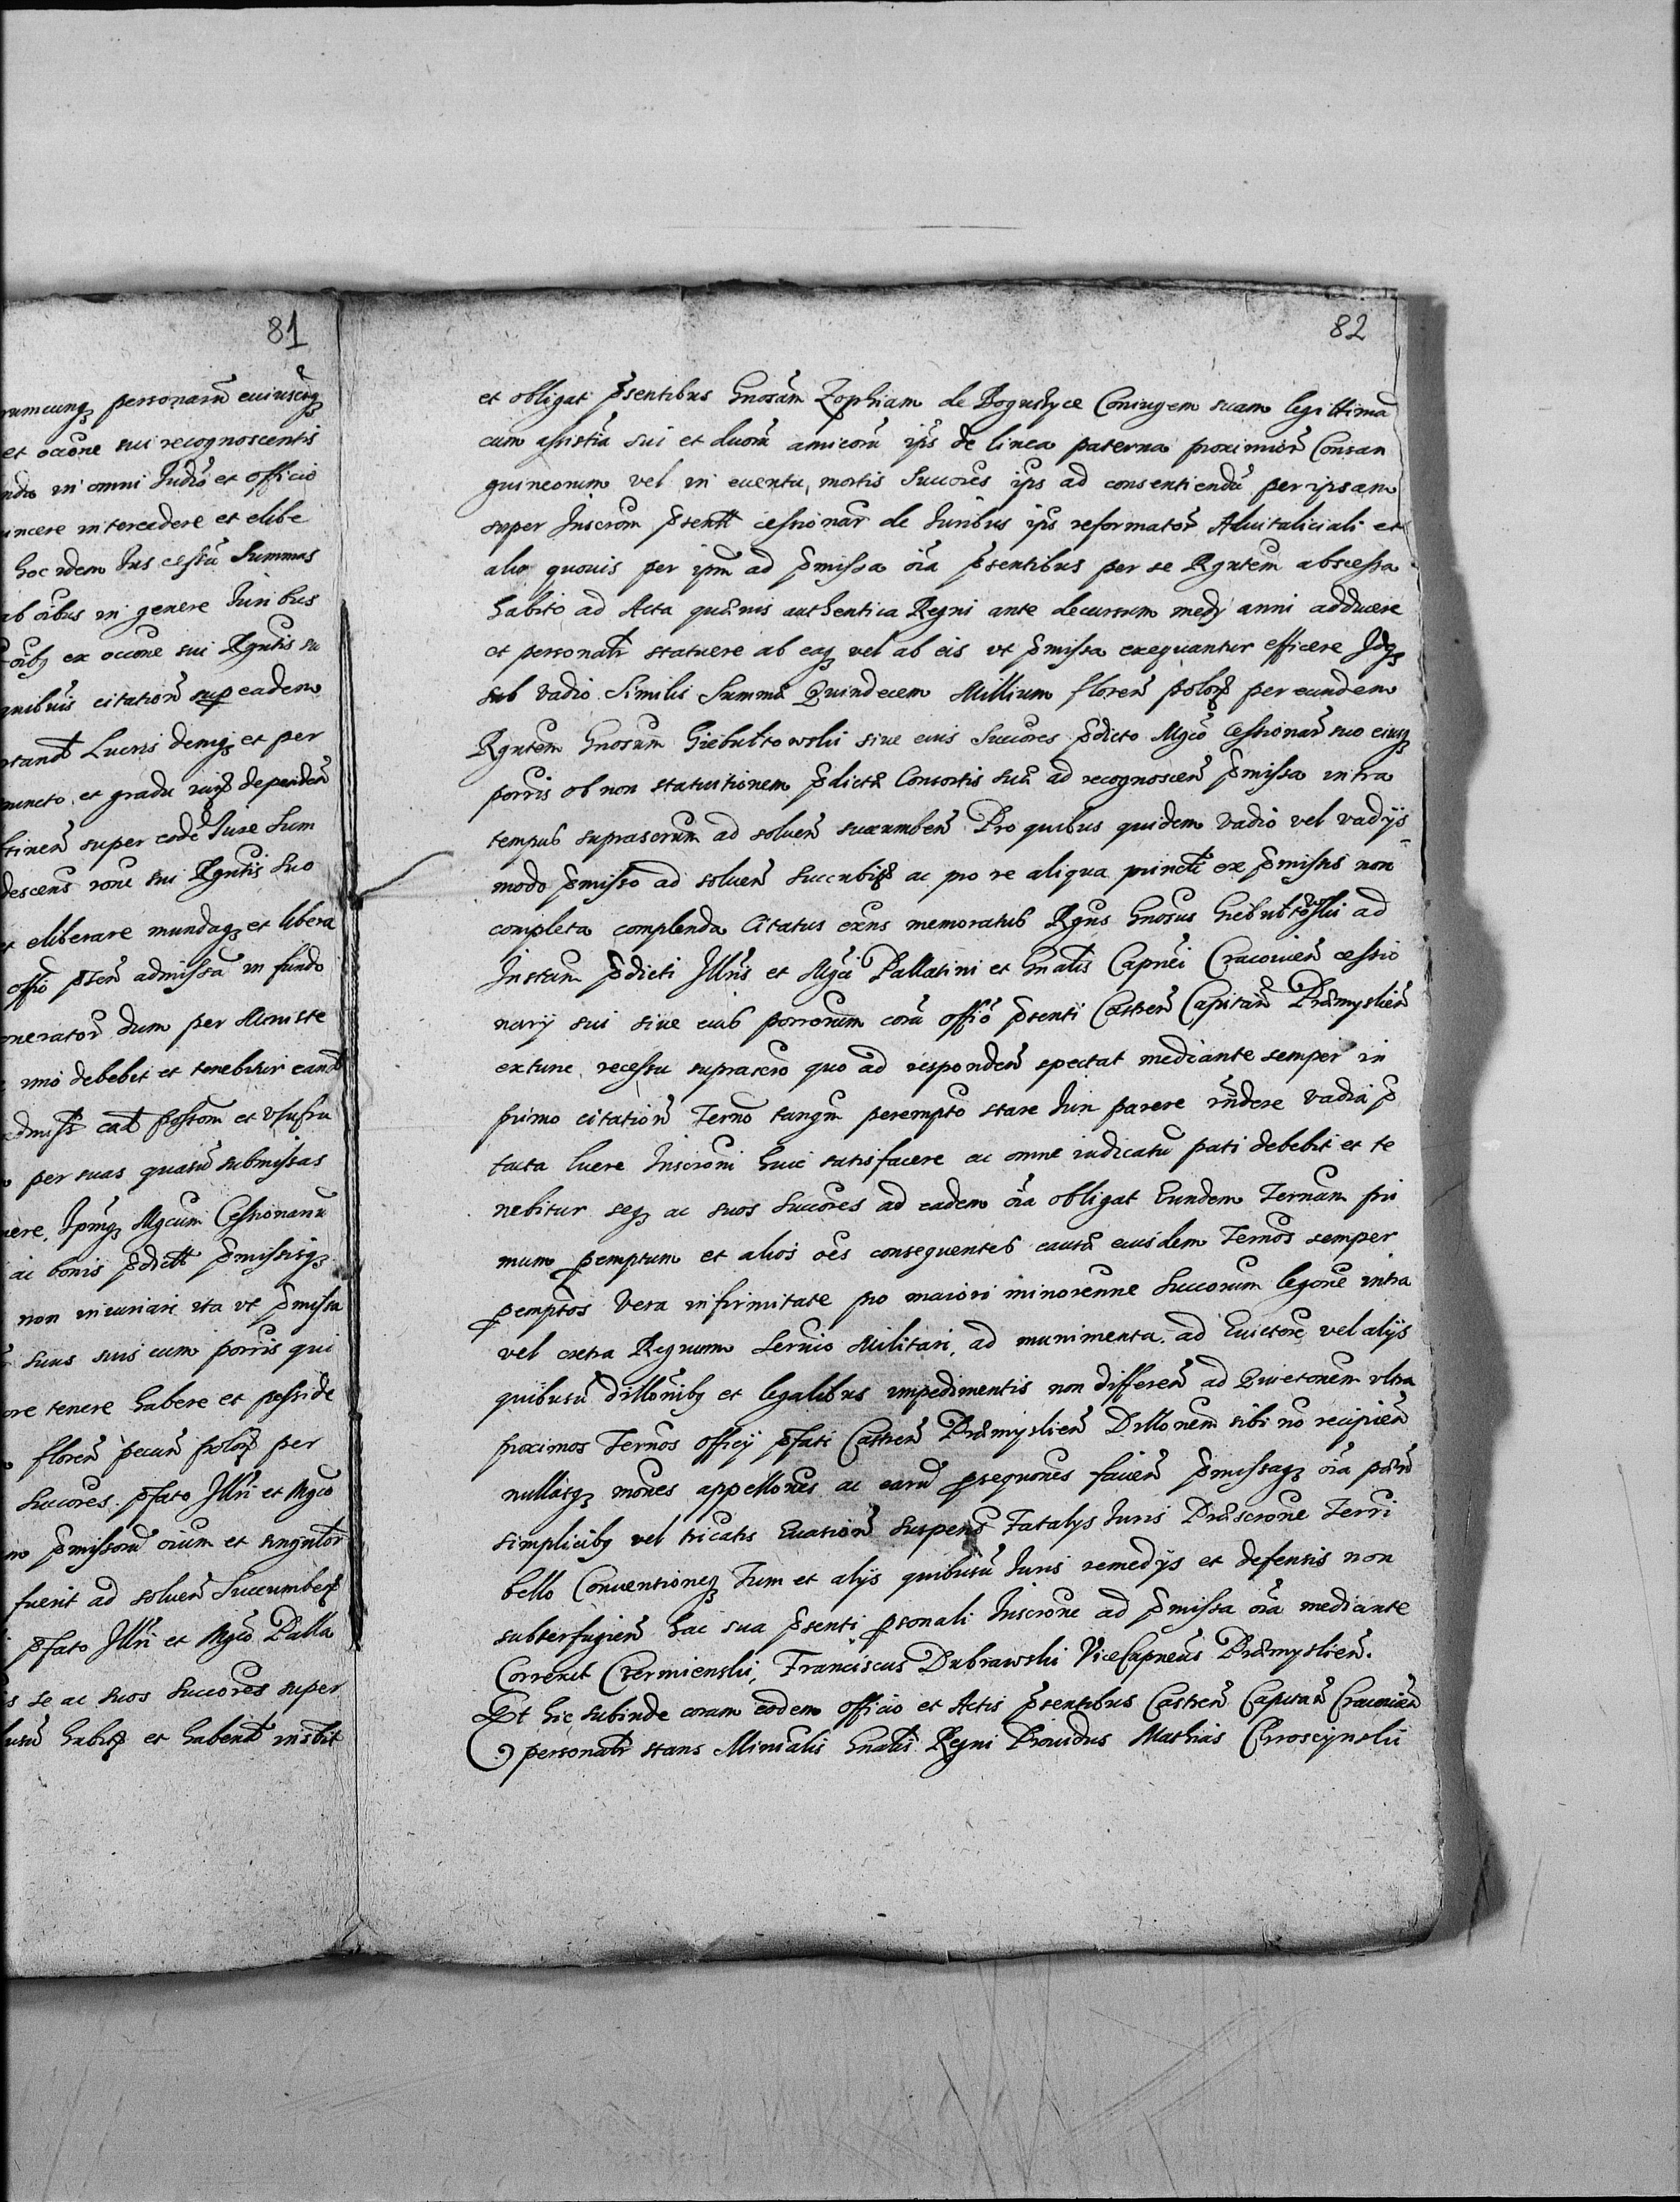 81
rumcunq3 personarũ cuiuscũq3
et oc̃cone sui recognoscentis
in omni Iudõ et officio
uincere intercedere et elibe
hoc idem Ius cessũ Summas
ab oĩbus in genere Iuribus
oĩbq3 ex occone sui Rgntis su
citationũ sup eadem
Lucris demq3 et per
puncto et gradu dependeñ
super eodẽ Iure Sum
descens rone sui Rgntis suo
et eliberare mundaq3 et libera
offo pseñ admissa in fundo
dum per Moniste
imo debebit et tenebitur eand
ead possom et Vsufru
per suas quasuis submissas
Ipmq3 Mgcum Cessionariũ
ac bonis pdictt p̃missisq3
non iniuriari ita vt p̃missa
suus suis cum porris qui
tenere habere et posside
floreñ pecuñ polo per
Succores p̃fato Illri et Mgco
p̃missorũ oium et singulor
fuerit ad solueñ Succumbeñ
p̃fato Illri et Mgco Palla
se ac suos Succores super
habit et habend inscbit
82
et obligat p̃sentibus Gnosam Zophiam de Boguszyce Coniugem suam legittimã
cum assistiã sui et duorũ amicorũ ips de linea paterna proximior Consan
guineorum vel in euentu mortis Succores ips ad consentiendũ per ipsam
super Inscrom p̃sentt cessionar de Iuribus ips reformator Aduitaliciali et
alio quouis per ipm ad p̃missa oia p̃sentibus per se Rgntem abscessa
habito ad Acta quãuis authentica Regni ante decursum medij anni adducere
et personatr statuere ab eaq3 vel ab eis vt p̃missa exequantur efficere Idq3
sub vadio Similis Summæ Quindecem Millium floreñ polo per eundem
Rgntem Gnosum Giebultowski siue eius Succores p̃dicto Mgco Cessionar suo eiusq3
porris ob non statuitionem p̃dictæ Consortis suæ ad recognosceñ p̃missa intra
tempus suprascrum ad solueñ succumbeñ Pro quibus quidem vadio vel vadijs
modo p̃misso ad solueñ Succubi ac pro re aliqua puncti ex p̃missis non
completa complenda Citatus exñs memoratus Rgns Gnosus Giebultowski ad
Instam p̃dicti Illris et Mgci Pallatini et Gnalis Capnei Cracouieñ cessio
narij sui siue eius porrorum corã offo p̃senti Castreñ Capitañ Præmyslieñ
extunc recessu suprascro quo ad respondeñ spectat mediante semper in
primo citationũ Terno tanqm perempto stare Iuri parere rñdere vadia p̃
tacta luere Inscroni huic satisfacere ac omne iudicatũ pati debebit et te
nebitur seq3 ac suos Succores ad eadem oia obligat Eundem Ternum pri
mum pemptum et alios oẽs consequentes causæ eiusdem Ternos semper
pemptos Vera infirmitate pro maiori minorenne Succorum legone intra
vel extra Regnum Seruio Militari, ad munimenta, ad Euictorẽ vel alijs
quibusũ dillonibq3 et legalibus impedimentis non differeñ ad Quietonem vltra
proximos Ternos officij p̃fati Castreñ Præmyslieñ Dillonem sibi nõ recipieñ
nullasq3 mones appellones ac earũ psequones facieñ p̃missaq3 oia
simplicibq3 vel tricatis Euasioñ Suspens Fatalys Iuris Præscrone Terri
bello Conuentioneq3 Tum et alijs quibusũ Iuris remedijs et defensis non
subterfugieñ hac sua p̃senti psonali Inscrone ad p̃missa oia mediante
Correxit Czermienski, Franciscus Dubrawski ViceCapneus Præmyslieñ.
Et hic subinde coram eodem officio et Actis p̃sentibus Castreñ Capitañ Cracouieñ
personatr stans Minialis Gnalis Regni Prouidus Mathias Chroscynski